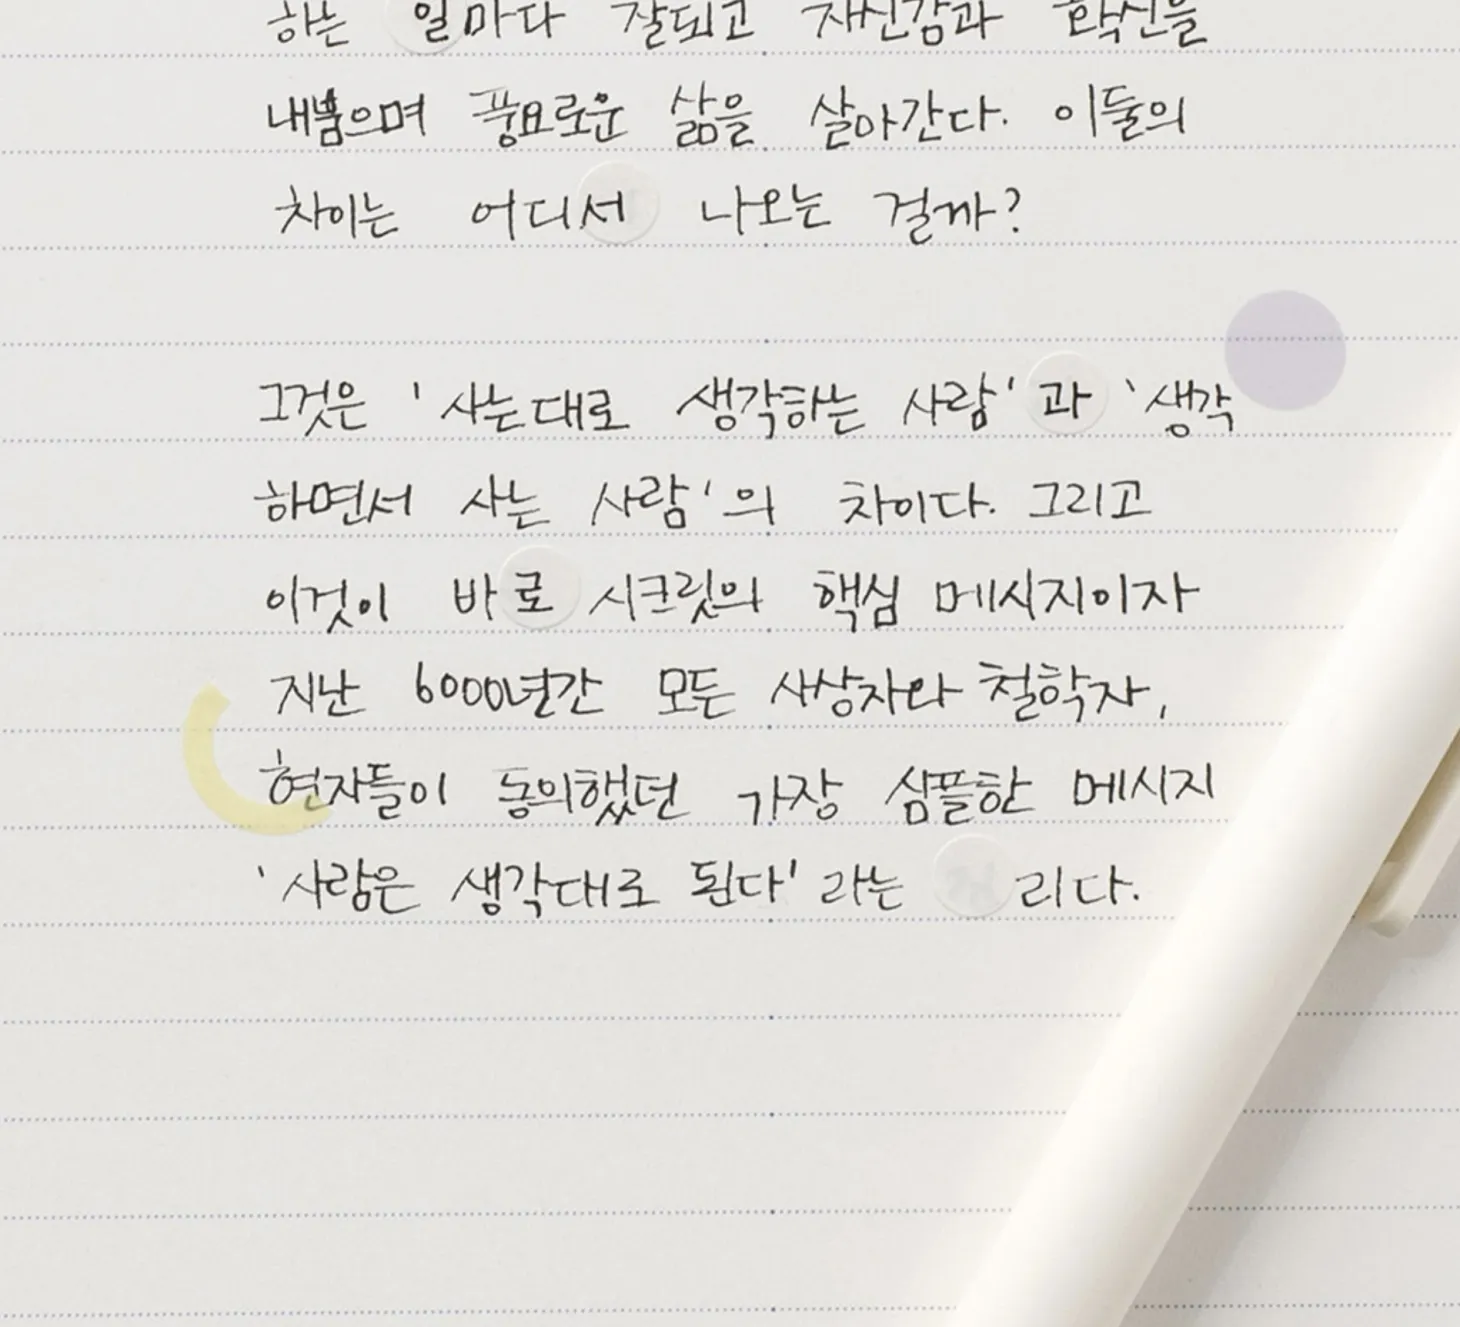 하는 일마다 잘되고 자신감과 확신을
내뿜으며 풍요로운 삶을 살아간다. 이들의
차이는 어디서 나오는 걸까?
그것은 '사는대로 생각하는 사람'과 '생각
하면서 사는 사람'의 차이다. 그리고
이것이 바로 시크릿의 핵심 메시지이자
지난 6000년간 모든 사상자와 철학자,
현자들이 동의했던 가장 심플한 메시지
'사람은 생각대로 된다' 라는